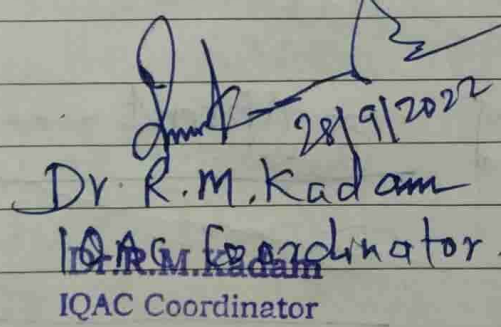 28/9/2022
Dr. R.M. Kadam
IQAC Coordinator.
Dr. R.M. Kadam
IQAC Coordinator